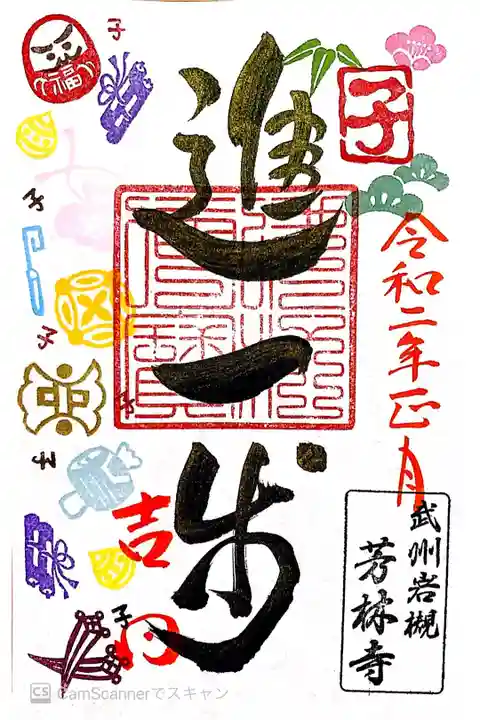 子
令和二年正月
進一歩
武州岩槻
芳林寺
吉
福
子
子
子
子
子
CS CamScannerでスキャン